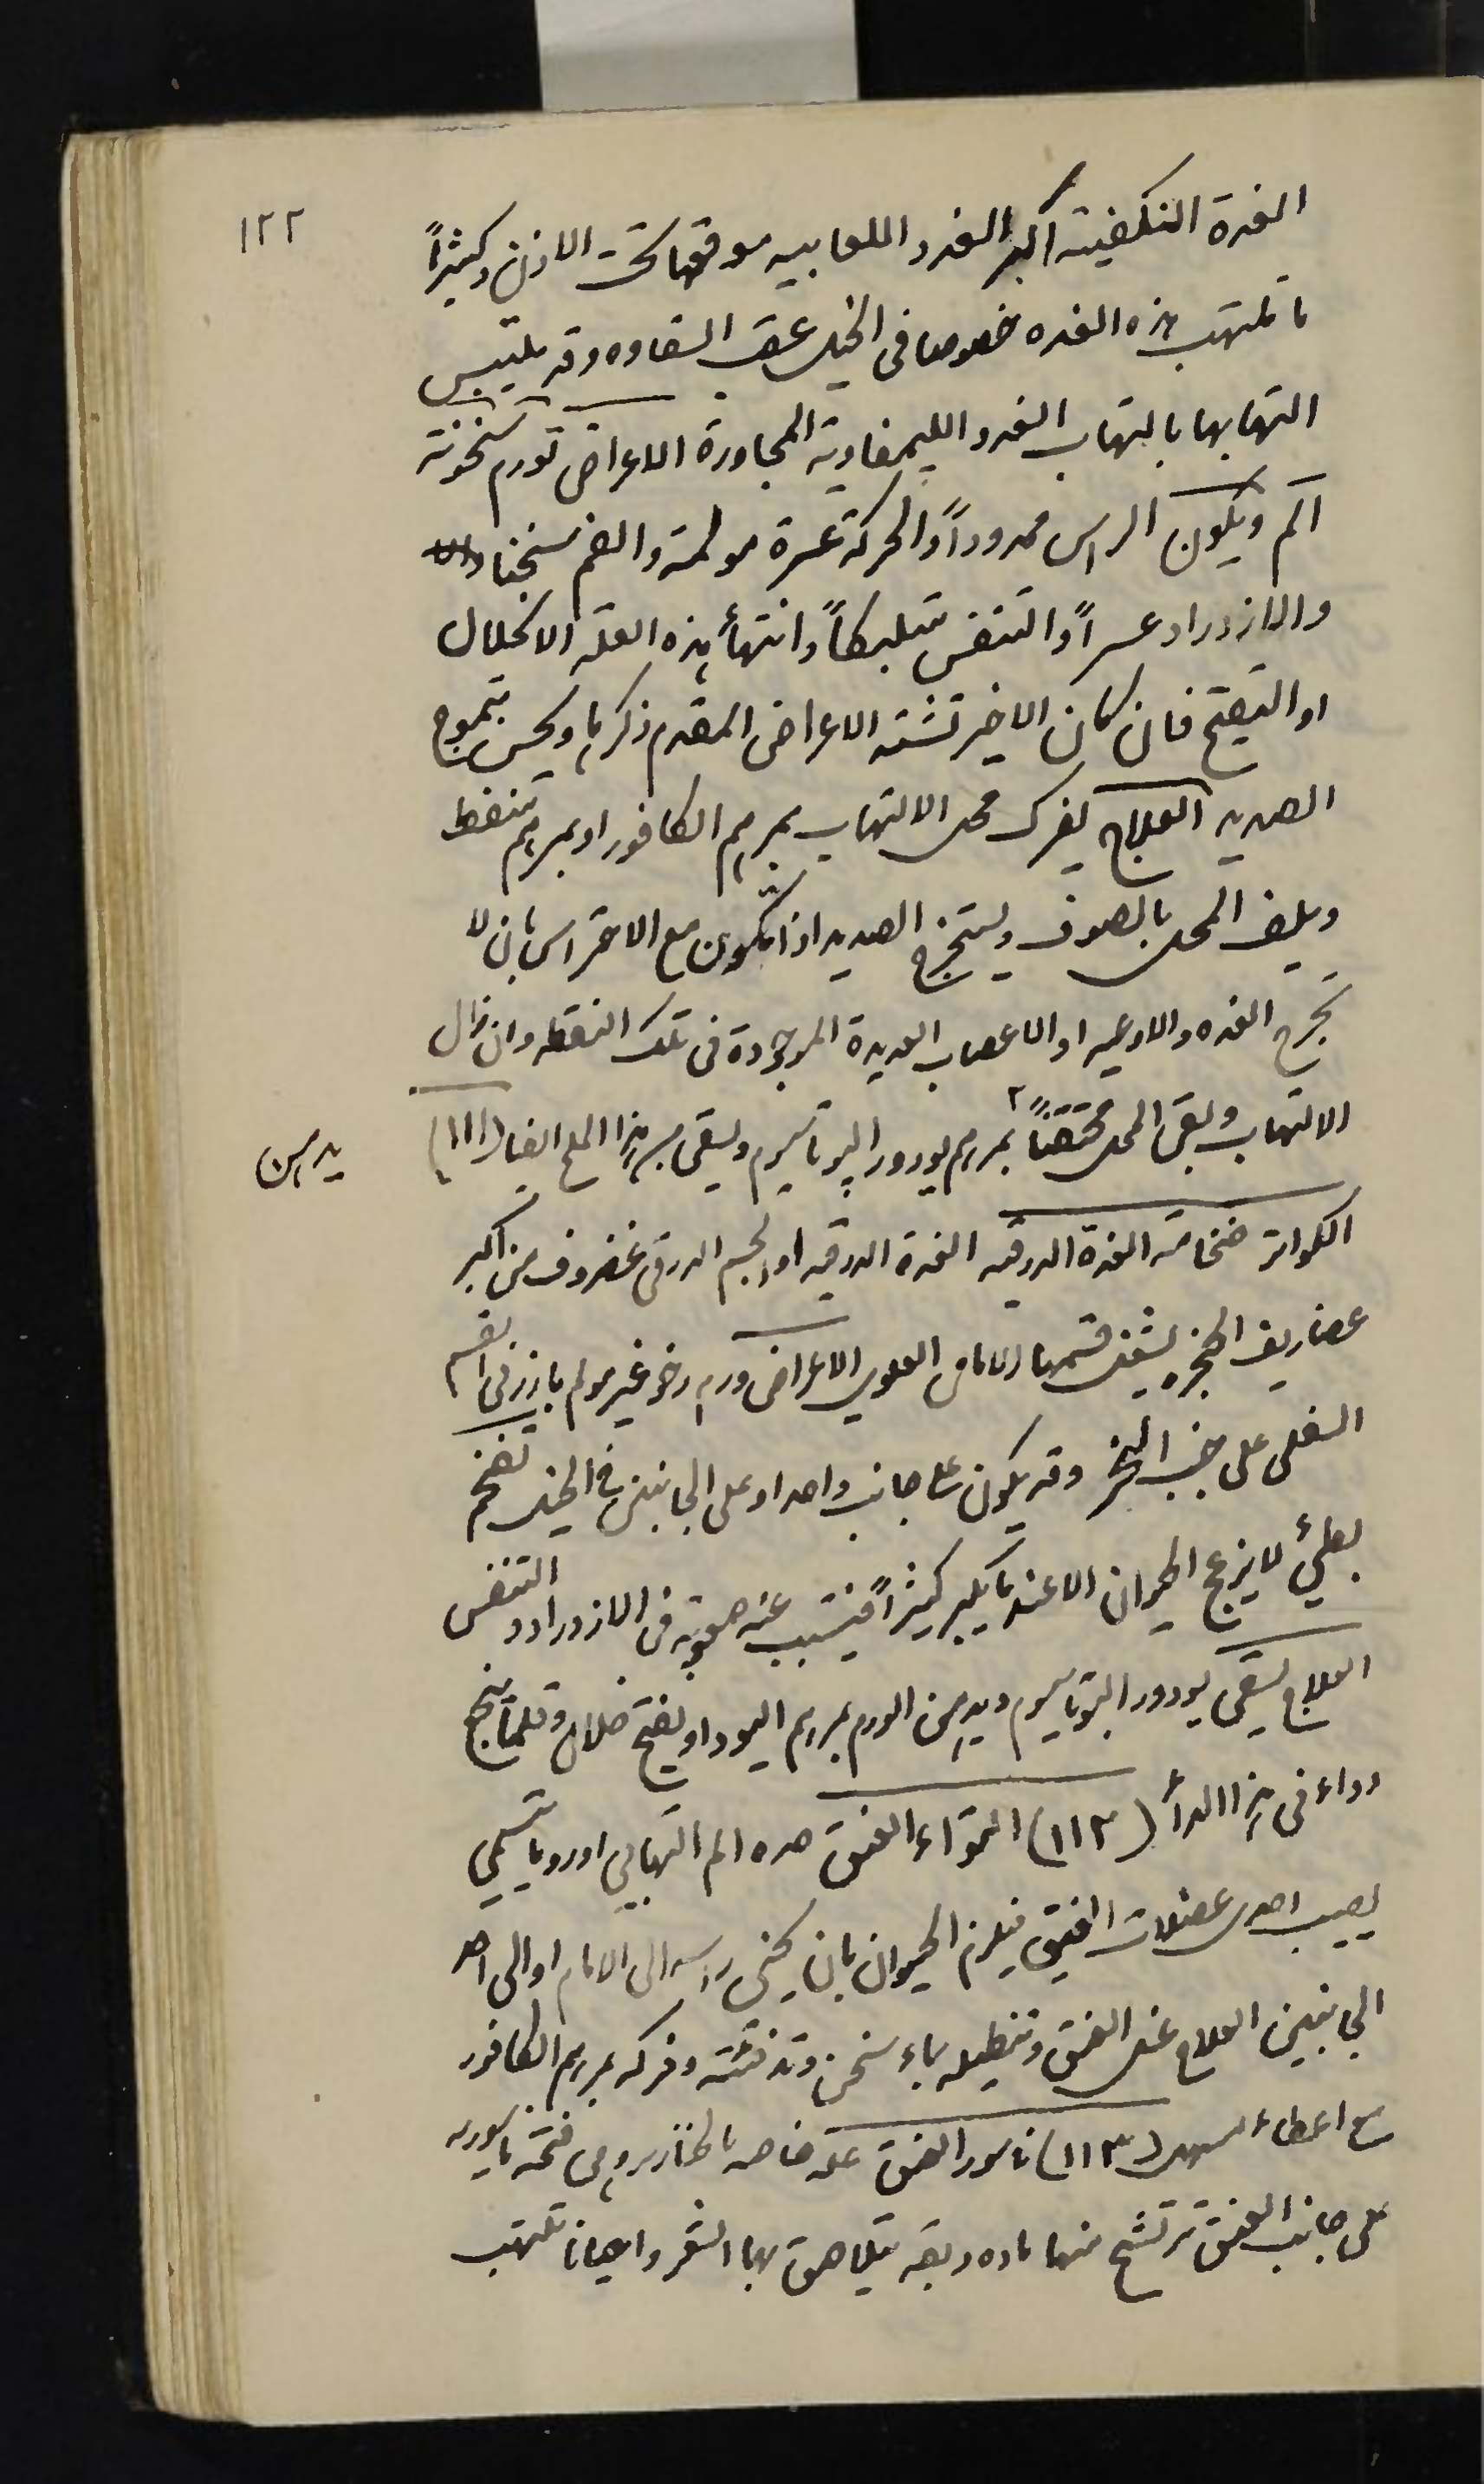 ١٢٢
الغدة النكفيته اكبر الغدد اللعابيه موقعها تحت الاذن وكثيراً
ما تلتهب هذه الغده خصوصا فى الخيل عقب السقاوه وقد يلتبس
التهابها بالتهاب الغدد الليمفاوية المجاورة الاعراض تورم سخونة
الم ويكون الراس ممدوداً والحركة عسرة مولمة والفم سخنا
والازدراد عسراً والتنفس متلبكاً وانتهأ هذه العلة الانحلال
او التقيح فان كان الاخير تشتد الاعراض المقدم ذكرها ويحس بتموج
الصديد العلاج يفرك محل الالتهاب بمرهم الكافور او بمرهم منفط
ويلف المحل بالصوف ويستخرج الصديد اذا تكون مع الاحتراس بان لا
تجرح الغده والاوعيه او الاعصاب العديدة الموجودة فى تلك النقطه وان زال
الالتهاب وبقى المحل محتقناً ٢ بمرهم يودور البوتاسيوم ويسقى من هذا الملح ايضا (١١١)
يدهن
الكواتر ضخامة الغدة الدرقيه الغدة الدرقيه او الجسم الدرقى غضروف من اكبر
غضاريف الحنجره يشغل قسمها الامامى العلوي الاعراض ورم رخو غير مولم بارز فى القسم
السفلى على جنب النحر وقد يكون على جانب واحد او على الجانبين فى الخيل تضخم
بطيئ لا يزعج الحيوان الا عندما يكبر كثيراً فيتسبب عنه صعوبة فى الازدراد والتنفس
العلاج يسقى يودور البوتاسيوم ويدهن الورم بمرهم اليود او يفتح خلال وقلما ينجح
دواء فى هذا الدأ (١١٢) التواء العنق هذه الم التهابي او روماتسمي
يصيب احدى عضلات العنق فيلزم الحيوان بان يحنى راسه الى الامام او الى احد
الجانبين العلاج غسل العنق وتنطيله بماء سخن وتدفئته وفركه بمرهم الكافور
مع اعطاء المسهل (١١٣) ناسور العنق علة خاصه بالخنازير وهى فتحة ناسوريه
على جانب العنق ترتشح منها ماده دبقه يتلاصق بها الشعر واحيانا تلتهب